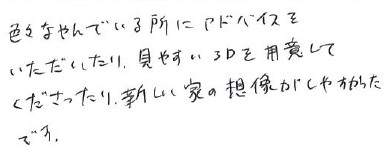 色々なやんでいる所にアドバイスを
いただいたり、見やすい3Dを用意して
くださったり、新しい家の想像がしやすかった
です。